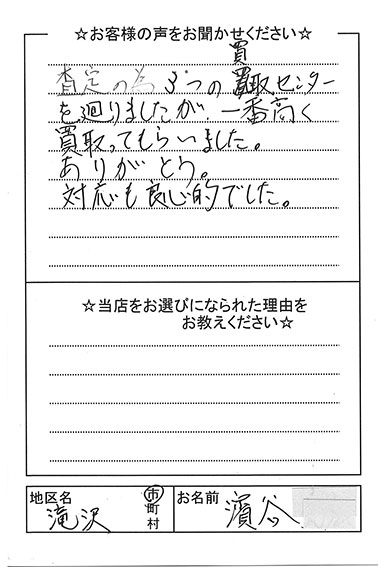 ☆お客様の声をお聞かせください☆
買
査定の為 3つの買取センター
を廻りましたが、一番高く
買取ってもらいました。
ありがとう。
対応も良心的でした。
☆当店をお選びになられた理由を
お教えください☆
地区名
滝沢
市
町
村
お名前
濱谷